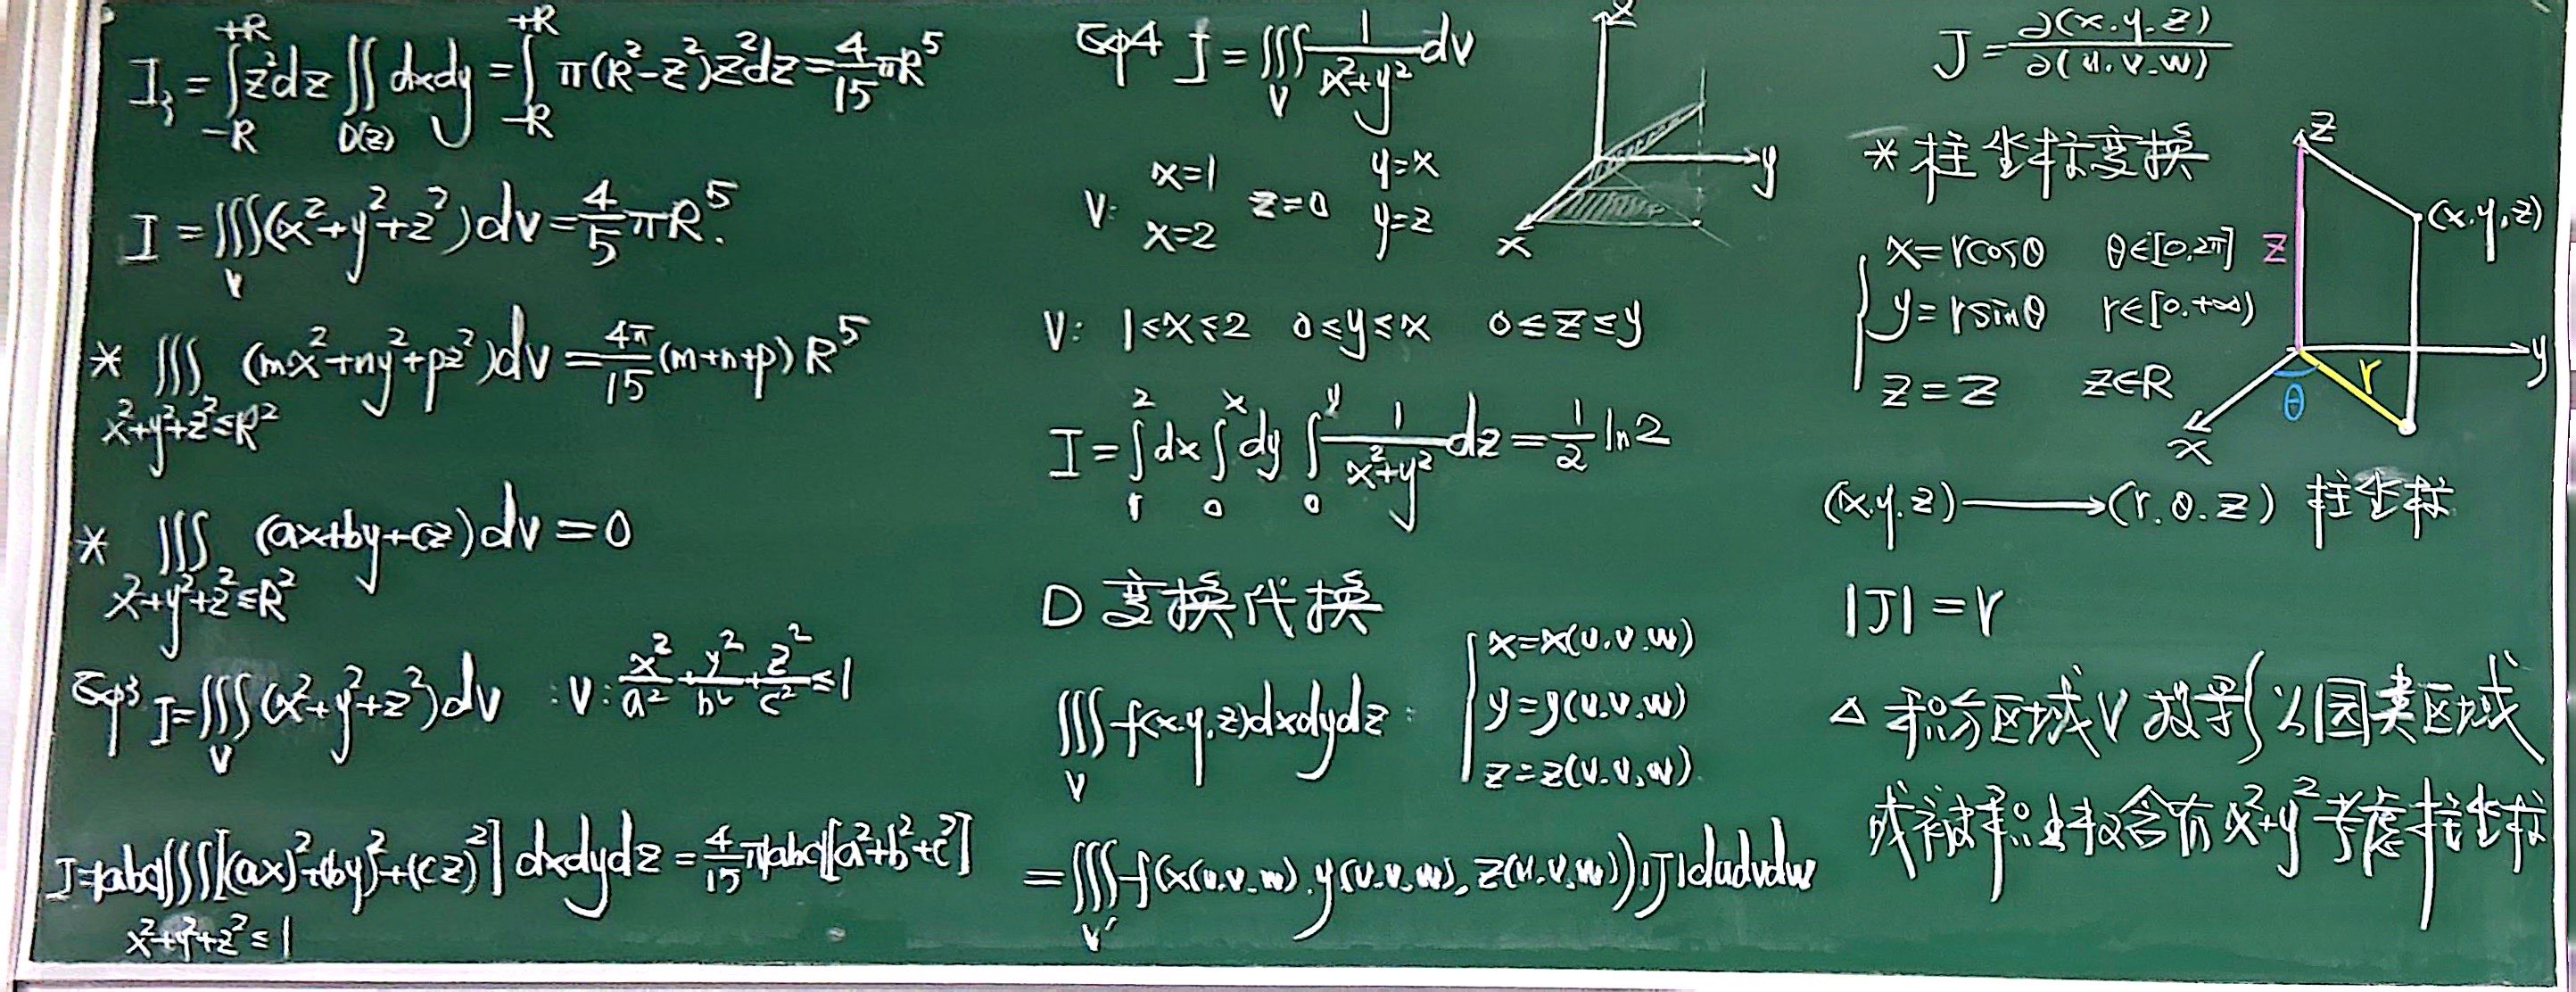 I₃ = ∫_{-R}^{+R} z²dz ∬_{D(z)} dxdy = ∫_{-R}^{+R} π(R²-z²)z²dz = 4/15 πR⁵
I = ∭_V (x²+y²+z²)dv = 4/5 πR⁵.
* ∭_{x²+y²+z²≤R²} (mx²+ny²+pz²)dv = 4π/15 (m+n+p)R⁵
* ∭_{x²+y²+z²≤R²} (ax+by+cz)dv = 0
Exp3 I = ∭_V (x²+y²+z²)dv : V: x²/a² + y²/b² + z²/c² ≤ 1
I = |abc| ∭_{x²+y²+z²≤1} [(ax)²+(by)²+(cz)²] dxdydz = 4/15 π|abc|[a²+b²+c²]
Exp4 I = ∭_V 1/(x²+y²) dv
z
y
x
V: x=1 x=2 z=0 y=x y=z
V: 1≤x≤2 0≤y≤x 0≤z≤y
I = ∫_1^2 dx ∫_0^x dy ∫_0^y 1/(x²+y²) dz = 1/2 ln2
D 变换代换
∭_V f(x.y.z)dxdydz :
{ x=x(u.v.w)
y=y(u.v.w)
z=z(u.v.w)
= ∭_{V'} f(x(u.v.w).y(u.v.w).z(u.v.w))|J|dudvdw
J = ∂(x.y.z)/∂(u.v.w)
* 柱坐标变换
{ x=rcosθ θ∈[0.2π]
y=rsinθ r∈[0.+∞)
z=z z∈R
z
(x.y,z)
z
y
r
θ
x
(x.y.z) ⟶ (r.θ.z) 柱坐标
|J| = r
△ 积分区域V投影以圆类区域
或被积函数含有x²+y²考虑柱坐标